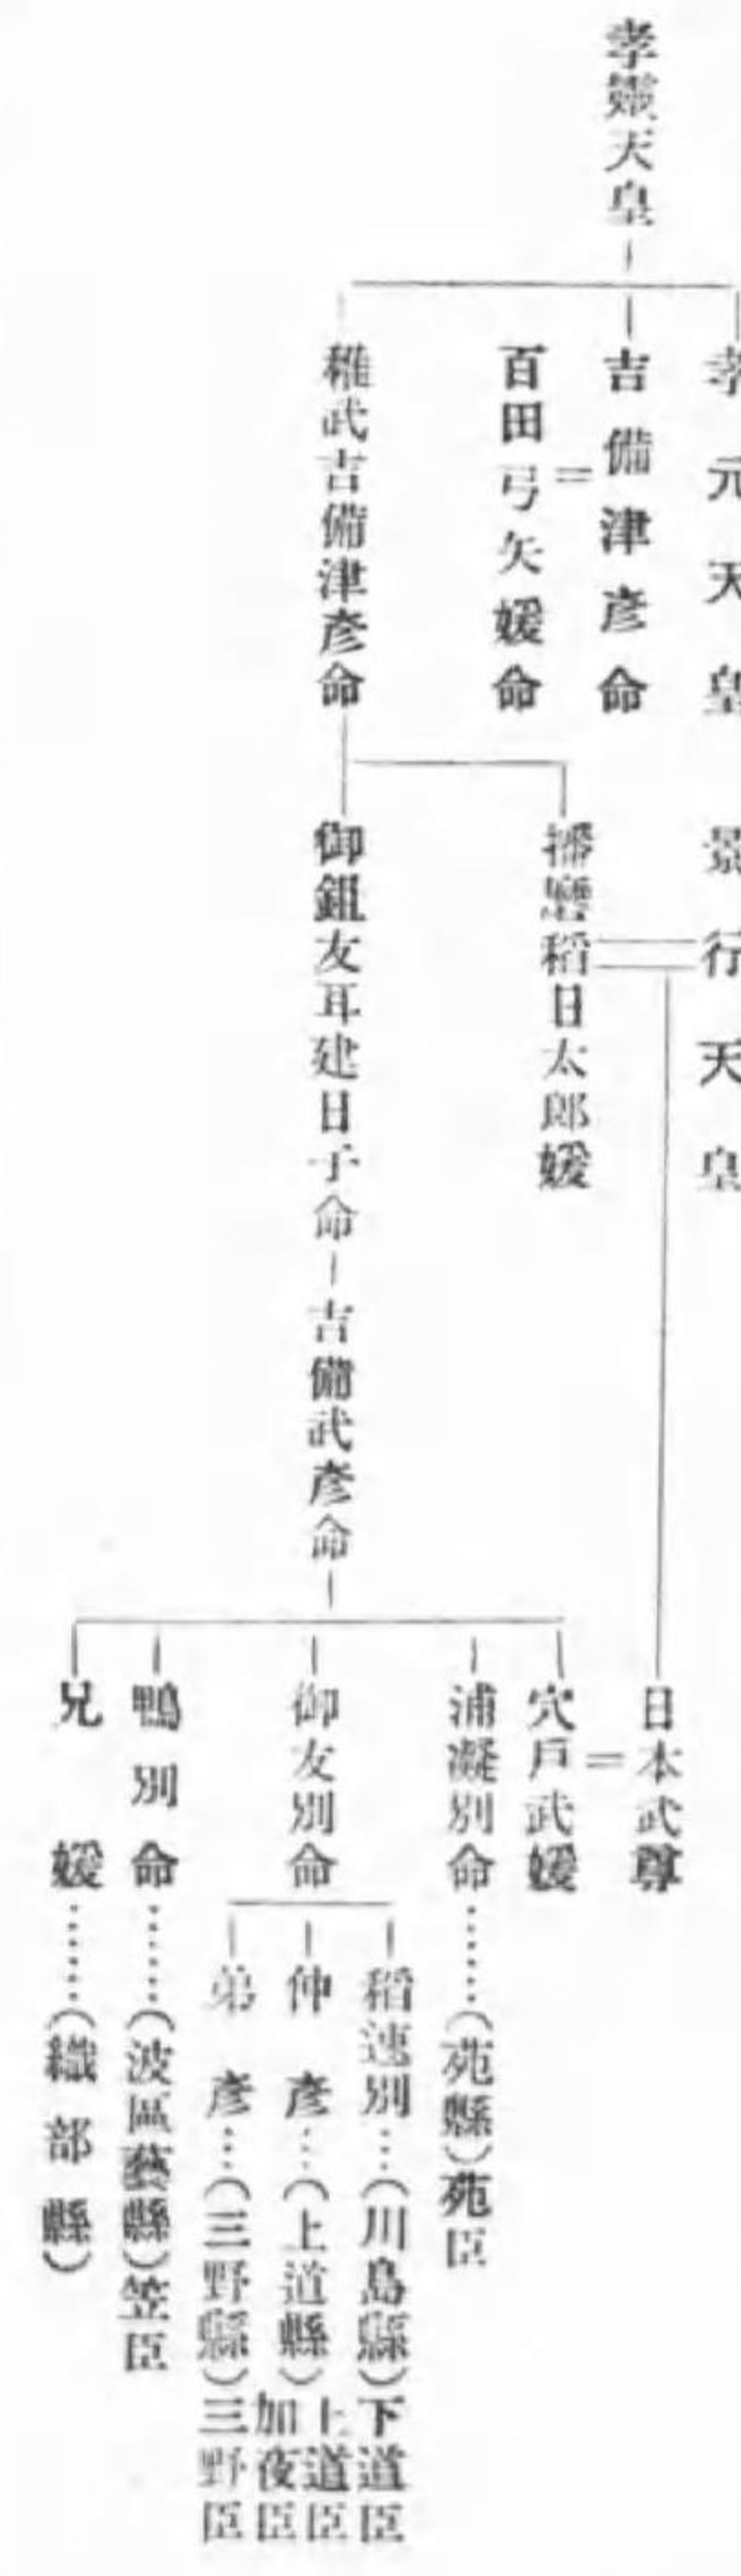 孝靈天皇
孝元天皇
吉備津彦命
百田弓矢媛命
稚武吉備津彦命
景行天皇
播磨稻日太郎媛
御鉏友耳建日子命
吉備武彦命
日本武尊
穴戸武媛
浦凝別命……(苑縣)苑臣
御友別命
稻速別…(川島縣)下道臣
仲彦…(上道縣)上道臣
加夜臣
弟彦…(三野縣)三野臣
鴨別命……(波區藝縣)笠臣
兄媛……(織部縣)